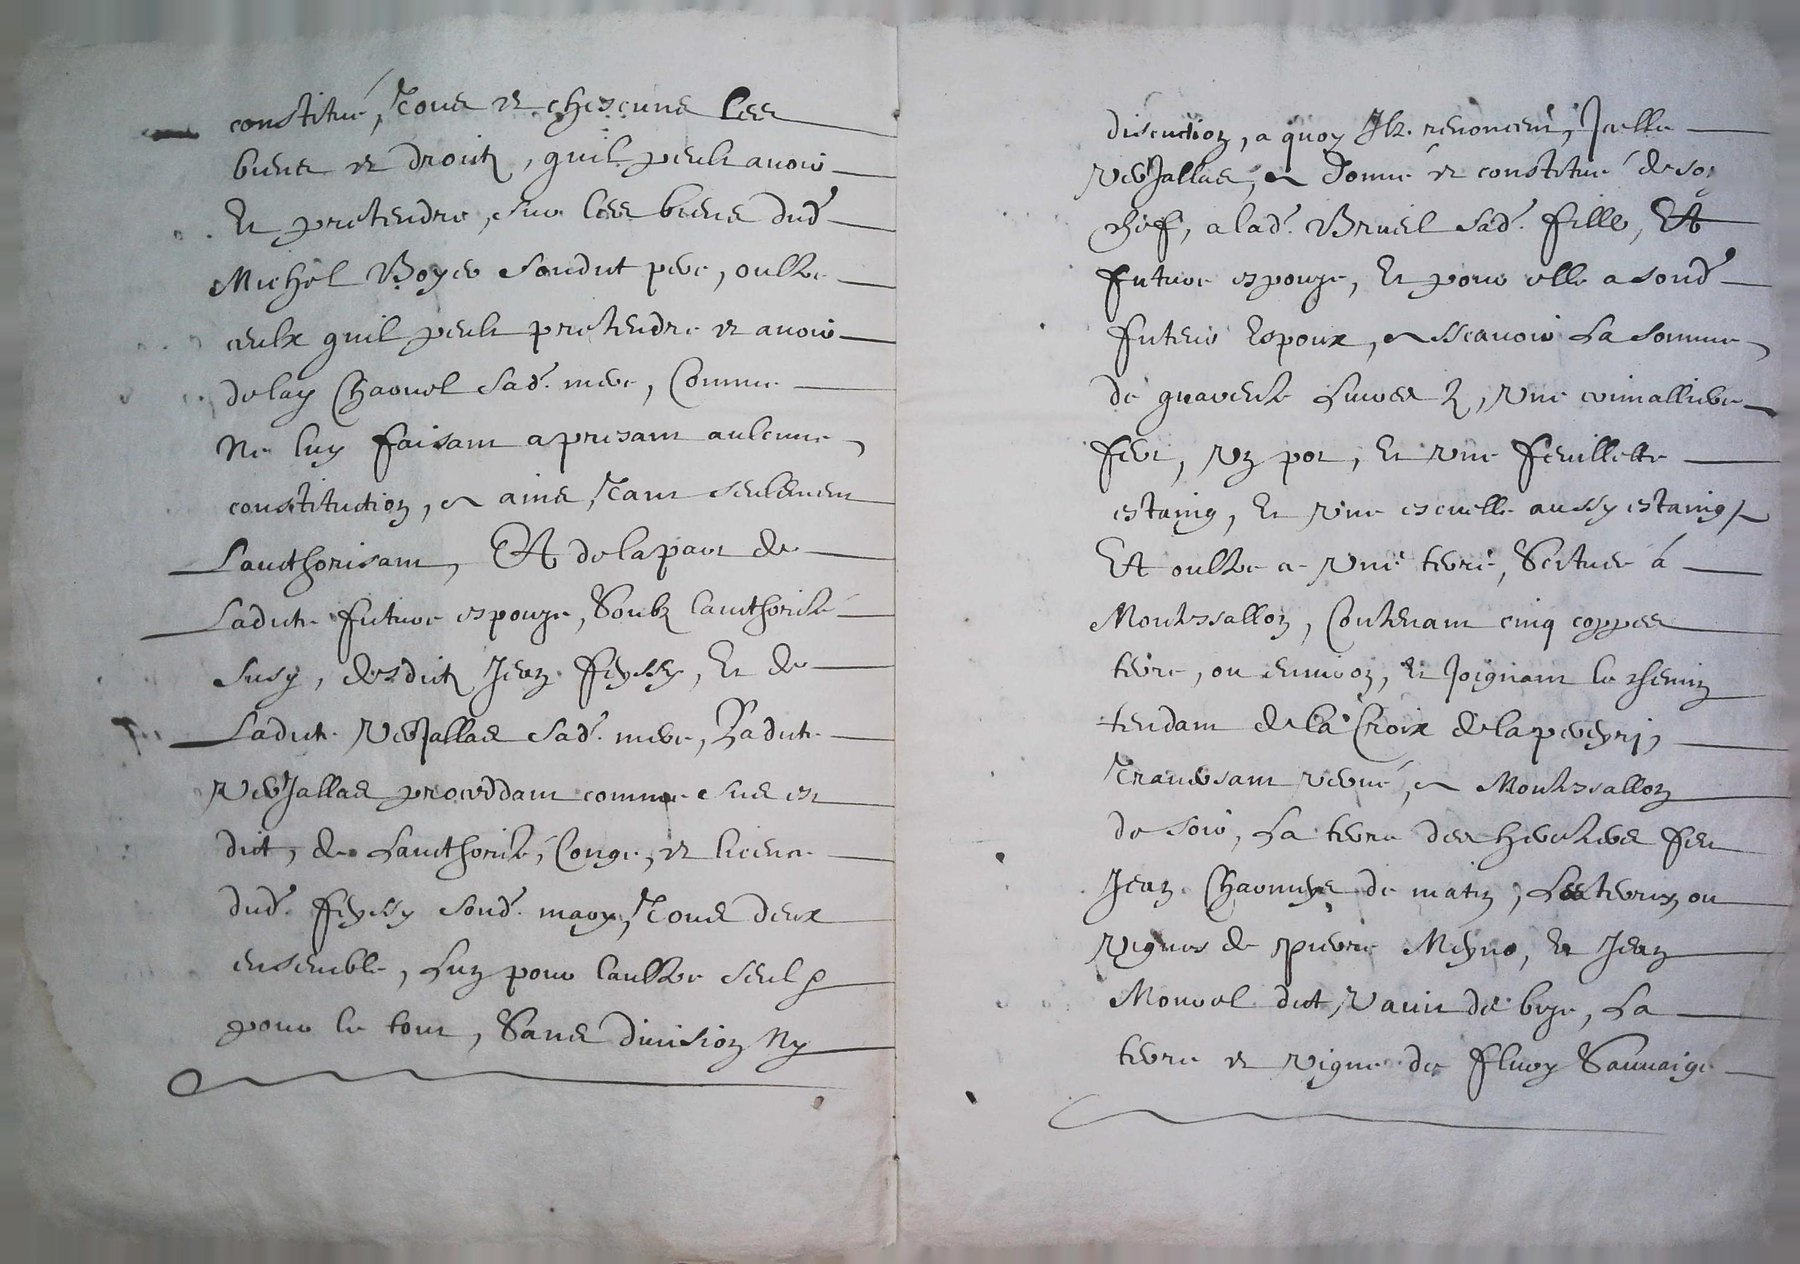 constitué, Tous et chescuns les
biens et droictz, quil peult avoir
Et pretendre, sur les biens dud.
Michel Boyer sondict pere, oultre
ceulx quil peult pretendre et avoir
de lay Chaovel sad. mere, Comme
Ne luy faisant a presant aulcune
constitution, ains, Tant seulement
Lauthorisant, Et de la part de
Ladicte future espouze, Soubz lauthorité
susd, desdictz Jean feyssy, Et de
Ladicte Verjallas sad. mere, Ladicte
Verjallas proceddant comme sus est
dict, de Lauthorité, Conge, et licence
dud. feyssy sond. mary, Tous deux
ensemble, Lun pour laultre seul
pour le tout, Sans division Ny
discution, a quoy Ilz renoncent, Icelle
Verjallas, a donné et constitué de son
chef, a lad. Bruel sad. fille, Et
future espouze, Et pour elle a sond.
futeur Espoux, a sscavoir La somme
de quarente Livres, Une crimalliere
fert, Un pot, Et Une feuillette
estaing, Et Une escuelle aussy estaing
Et oultre a Une terre, Scituee á
Montssallon, Contenant cinq coppes
terre, ou environ, Et Joignant le chemin
tendant de la Croix de la peyeyri,
Traversant a Montssallon
de soir, La terre des heretiers feu
Jean de matin, Les terres, ou
Vignes de pierre Meyno, Et Jean
Mourel dict, de bize, La
terre et Vigne de fleury Sauvaige